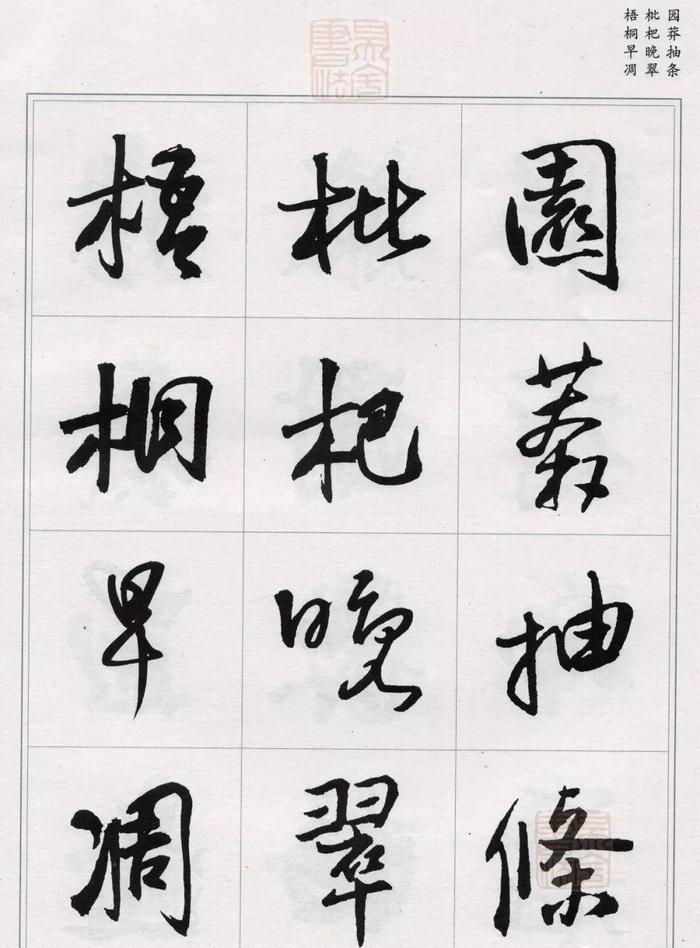 园莽抽条
枇杷晚翠
梧桐早凋
園莽抽條
枇杷晚翠
梧桐早凋